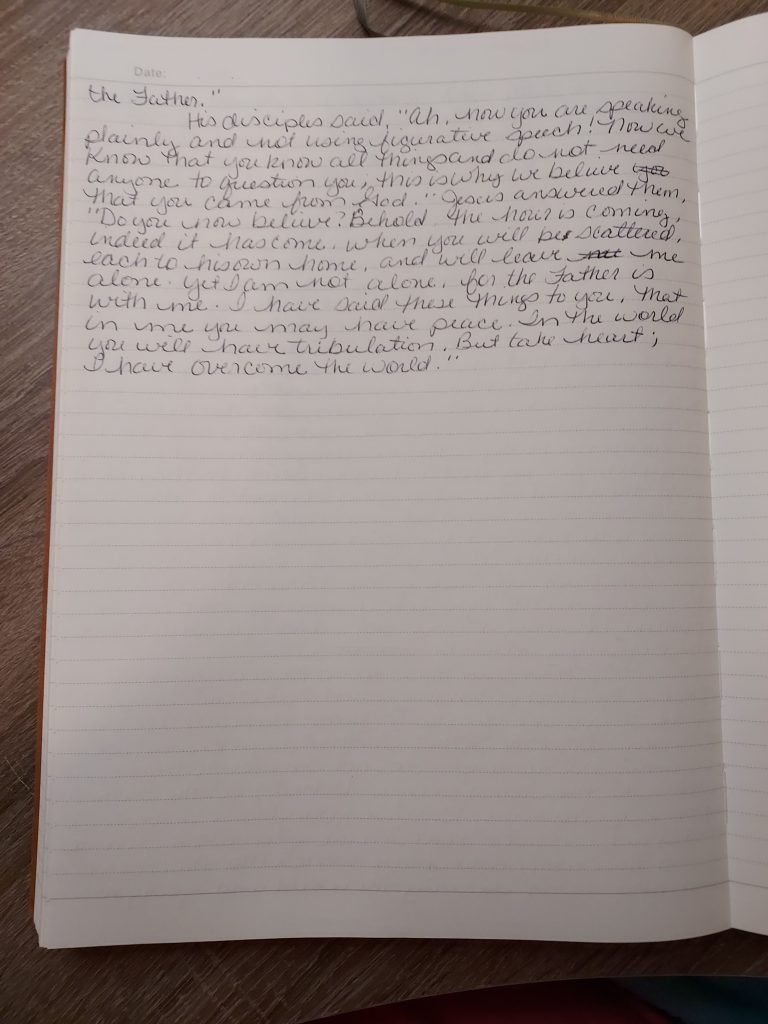 Date:
the Father."
His disciples said, "Ah, now you are speaking
plainly and not using figurative speech! Now we
know that you know all things and do not need
anyone to question you; this is why we believe you
that you came from God." Jesus answered them,
"Do you now believe? Behold, the hour is coming,
indeed it has come, when you will be scattered,
each to his own home, and will leave me
alone. Yet I am not alone, for the Father is
with me. I have said these things to you, that
in me you may have peace. In the world
you will have tribulation. But take heart;
I have overcome the world."